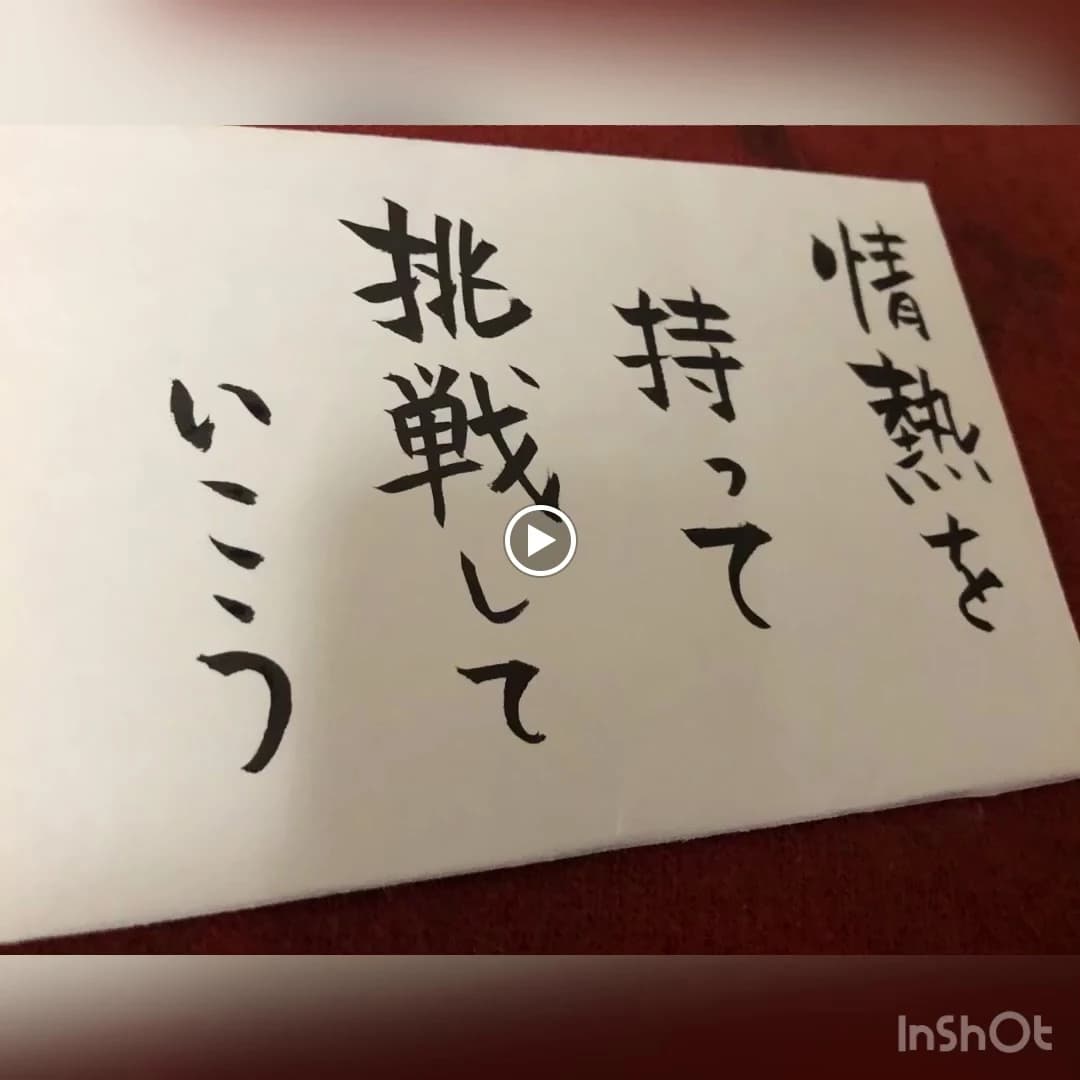 情熱を
持って
挑戦して
いこう
InShOt